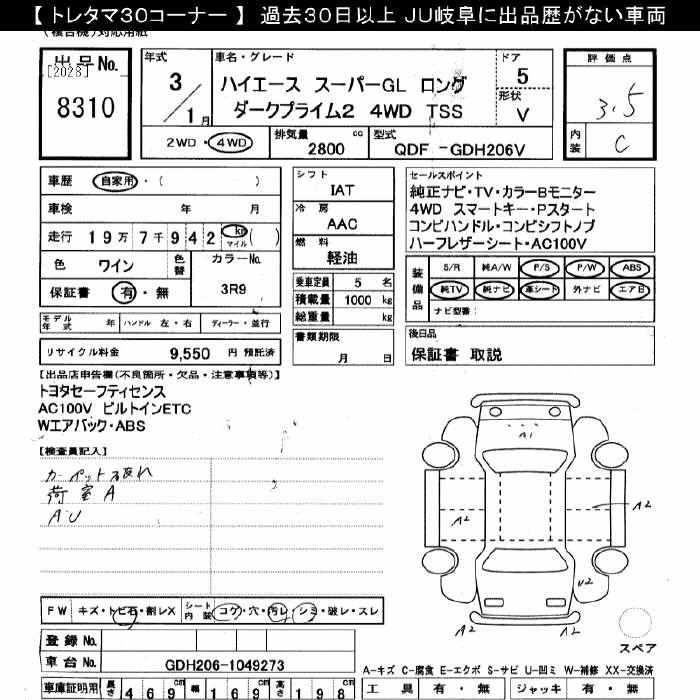 【 トレタマ30コーナー 】 過去30日以上 JU岐阜に出品歴がない車両
(複合機)対応用紙
出品No.
[2028]
8310
年式
3／1月
車名・グレード
ハイエース スーパーGL ロング
ダークプライム2 4WD TSS
ドア
5
形状
V
評価点
3.5
内装
C
2WD・4WD
排気量 cc
2800
型式
QDF -GDH206V
車歴 自家用・( )
車検 年 月
走行 19万7千942 km マイル ( )
色 ワイン 色替
カラーNo.
3R9
保証書 有・無
シフト
IAT
冷房
AAC
燃料
軽油
乗車定員 5 名
積載量 1000 kg
総重量 kg
セールスポイント
純正ナビ・TV・カラーBモニター
4WD スマートキー・Pスタート
コンビハンドル・コンビシフトノブ
ハーフレザーシート・AC100V
装備品
S/R 純A/W P/S P/W ABS
純TV 純ナビ 革シート 外ナビ エアB
ナビ型番:
モデル年式 年 ハンドル 左・右 ディーラー・並行
書類期限
月 日
後日品
保証書 取説
リサイクル料金 9,550 円 預託済
【出品店申告欄(不良箇所・欠品・注意事項等)】
トヨタセーフティセンス
AC100V ビルトインETC
Wエアバック・ABS
【検査員記入】
カーペット破れ
荷室A
AU
A1
A2
A2
U2
A2
A2
スペア
FW キズ・トビ石・割レX シート内装 コゲ・穴・汚レ・シミ・破レ・スレ
登録No.
車台No. GDH206-1049273
A-キズ C-腐食 E-エクボ S-サビ U-凹ミ W-補修 XX-交換済
車庫証明用 長さ 469 cm 幅 169 cm 高さ 198 cm
工具 有・無 ジャッキ 有・無